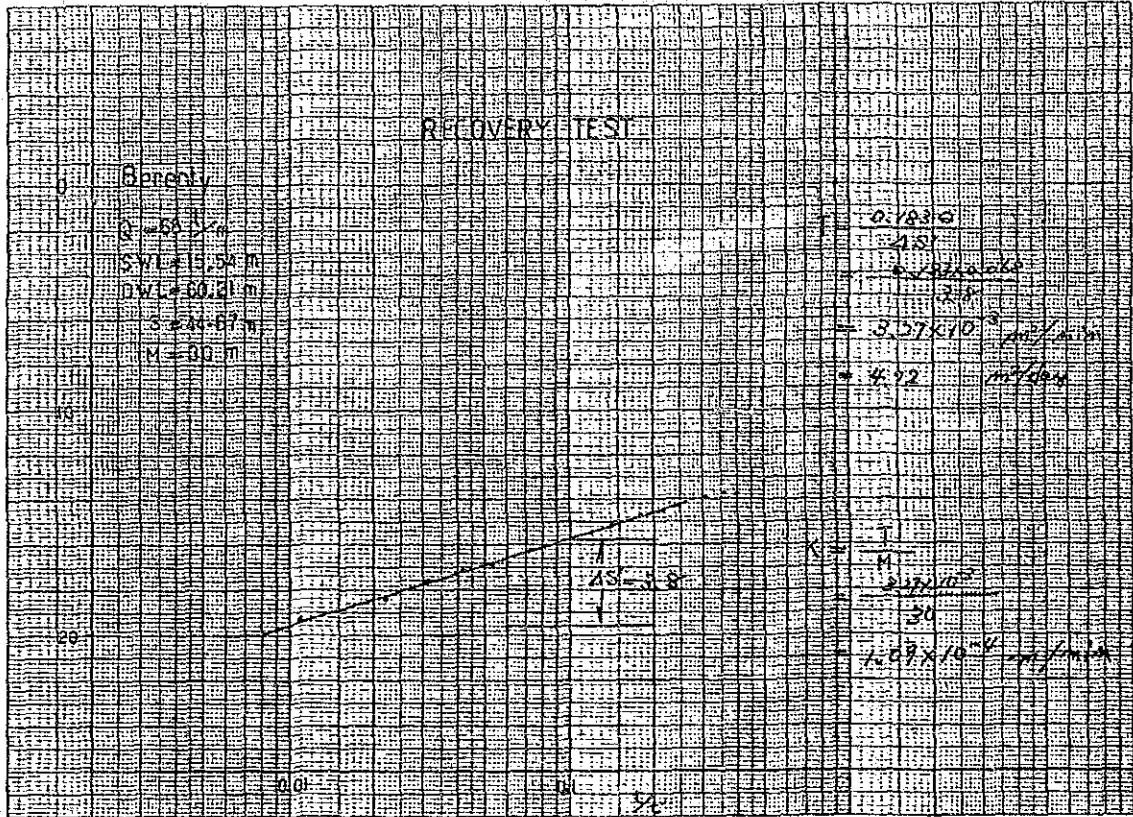 RECOVERY TEST
Berenty
Q = 68 l/m
SWL = 15.54 m
DWL = 60.21 m
S = 44.67 m
M = 30 m
0
10
20
T = 0.183Q
ΔS'
= 0.183x0.068
3.8
= 3.27×10⁻³ m²/min
= 4.72 m²/day
ΔS' = 3.8
K = T
M
= 3.27×10⁻³
30
= 1.09×10⁻⁴ m/min
0.01
0.1